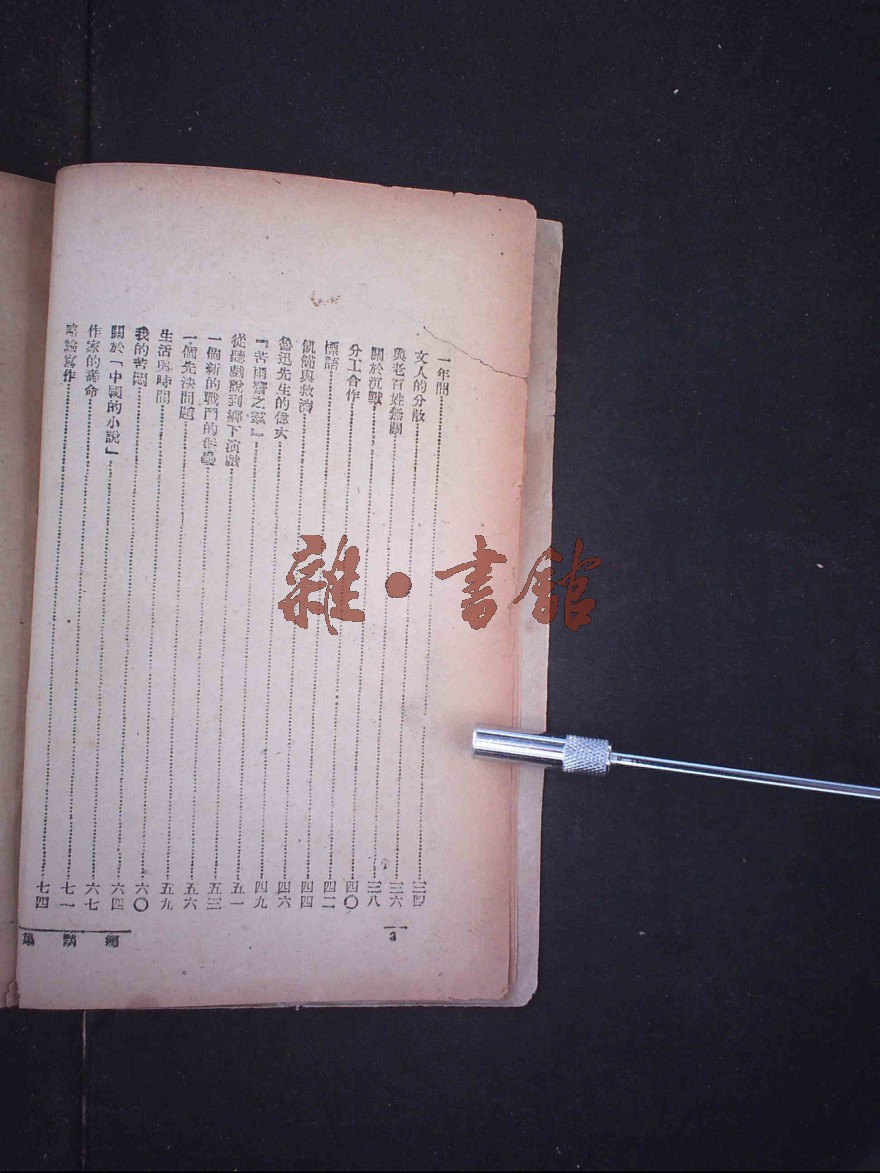 一年間……三四
文人的分散……三六
與老百姓無關……三八
關於沉默……四〇
分工合作……四二
標語……四四
飢饉與救濟……四六
魯迅先生的偉大……四九
『苦雨齋之』……五一
從聽戲說到鄉下演戲……五三
一個新的戰鬥的……五六
一個先決問題……五九
生活與時間……六〇
我的苦悶……六四
關於「中國的小說」……六七
作家的壽命……七一
略論寫作……七四
3
鄉談集
雜·書館